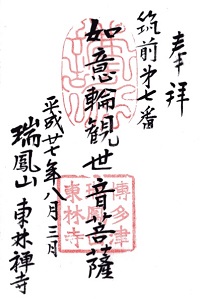 奉拝
筑前第七番
如意輪観世音菩薩
平成廿七年八月三日
瑞鳳山 東林禅寺
博多津
瑞鳳山
東林寺